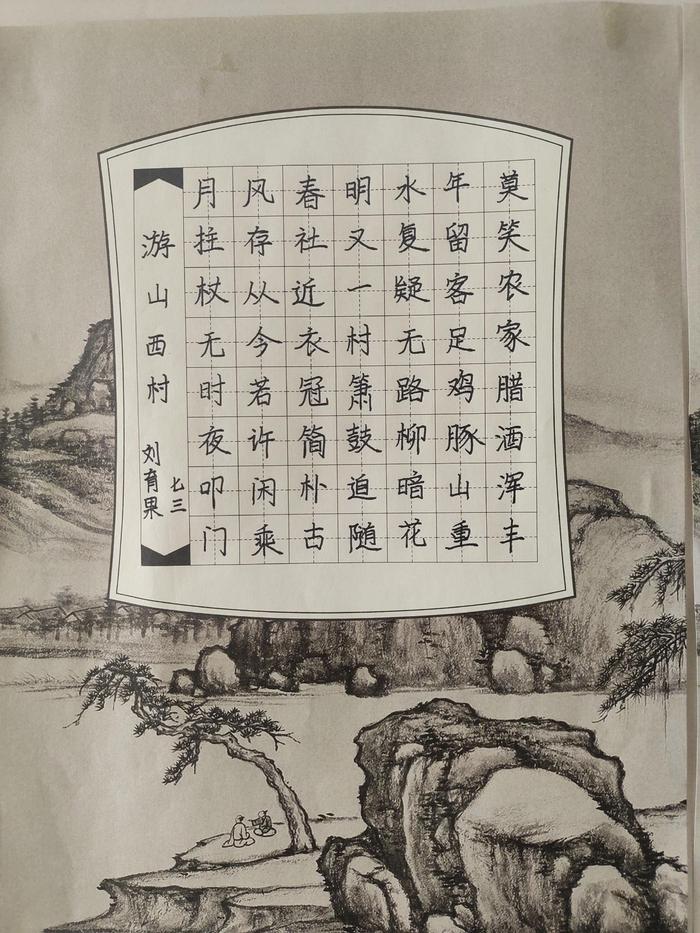 莫笑农家腊酒浑丰
年留客足鸡豚山重
水复疑无路柳暗花
明又一村箫鼓追随
春社近衣冠简朴古
风存从今若许闲乘
月拄杖无时夜叩门
游山西村
七三
刘育果